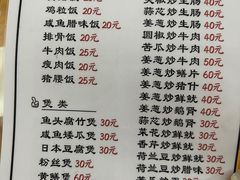 鸡粒饭 20元
咸鱼腊味饭 20元
排骨饭 20元
牛肉饭 25元
瘦肉饭 20元
猪腰饭 25元
煲类
鱼头腐竹煲 30元
咸鱼矮瓜煲 30元
日本豆腐煲 30元
粉丝煲 30元
黄鳝煲 60元
姜葱炒生肠 40元
蒜芯炒生肠 40元
姜葱炒牛肉 40元
圆椒炒牛肉 40元
苦瓜炒牛肉 40元
姜葱炒鳝片 60元
姜葱炒猪什 40元
姜葱炒鹅肾 40元
蒜芯炒鹅肾 40元
菜花炒鲜鱿 30元
香芹炒鲜鱿 30元
荷兰豆炒鲜鱿
荷兰豆炒腊味